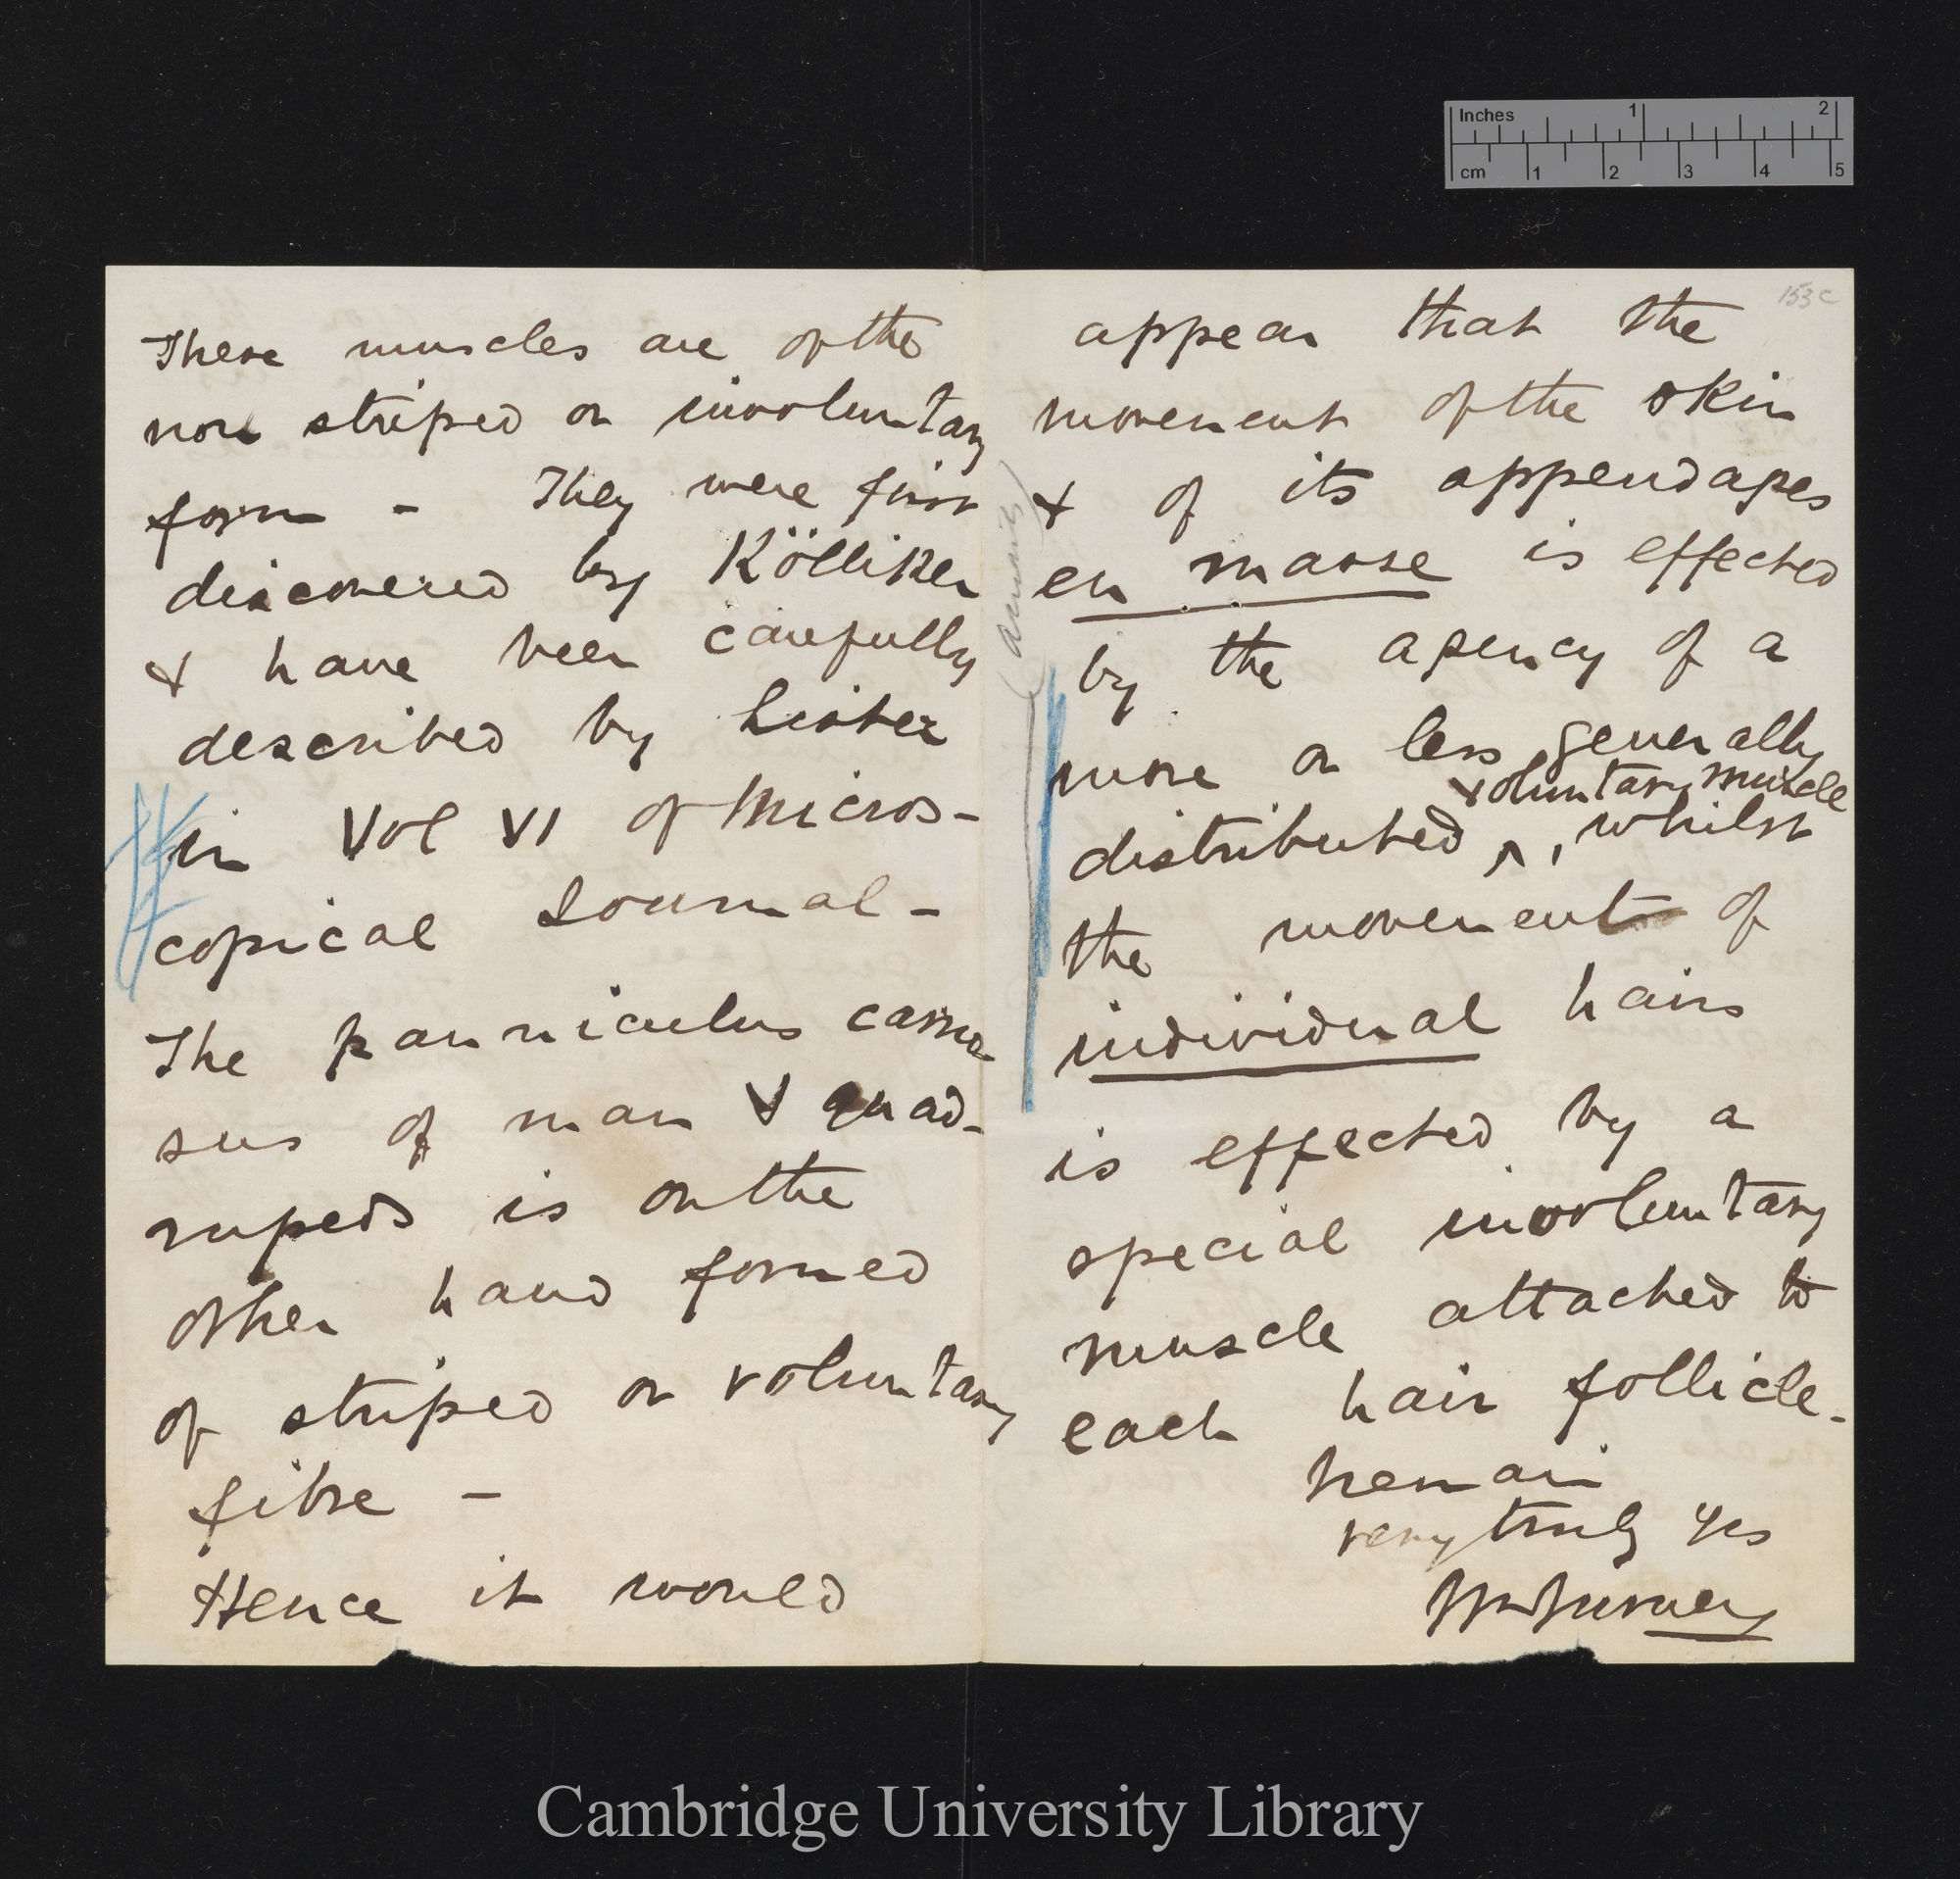 Inches 1 2
cm 1 2 3 4 5
153c
These muscles are of the
non striped or involuntary
form - They were first
discovered by Kölliker
& have been carefully
described by Lister
in Vol VI of Micros-
copical Journal -
The panniculus carno
sus of man & quad-
rupeds is on the
other hand formed
of striped or voluntary
fibre -
Hence it would
appear that the
movement of the skin
& of its appendages
en masse is effected
by the agency of a
more or less generally
voluntary muscle
distributed ^, whilst
the movement of
individual hairs
is effected by a
special involuntary
muscle attached to
each hair follicle.
Remain
very truly yrs
Wm Turner
Cambridge University Library